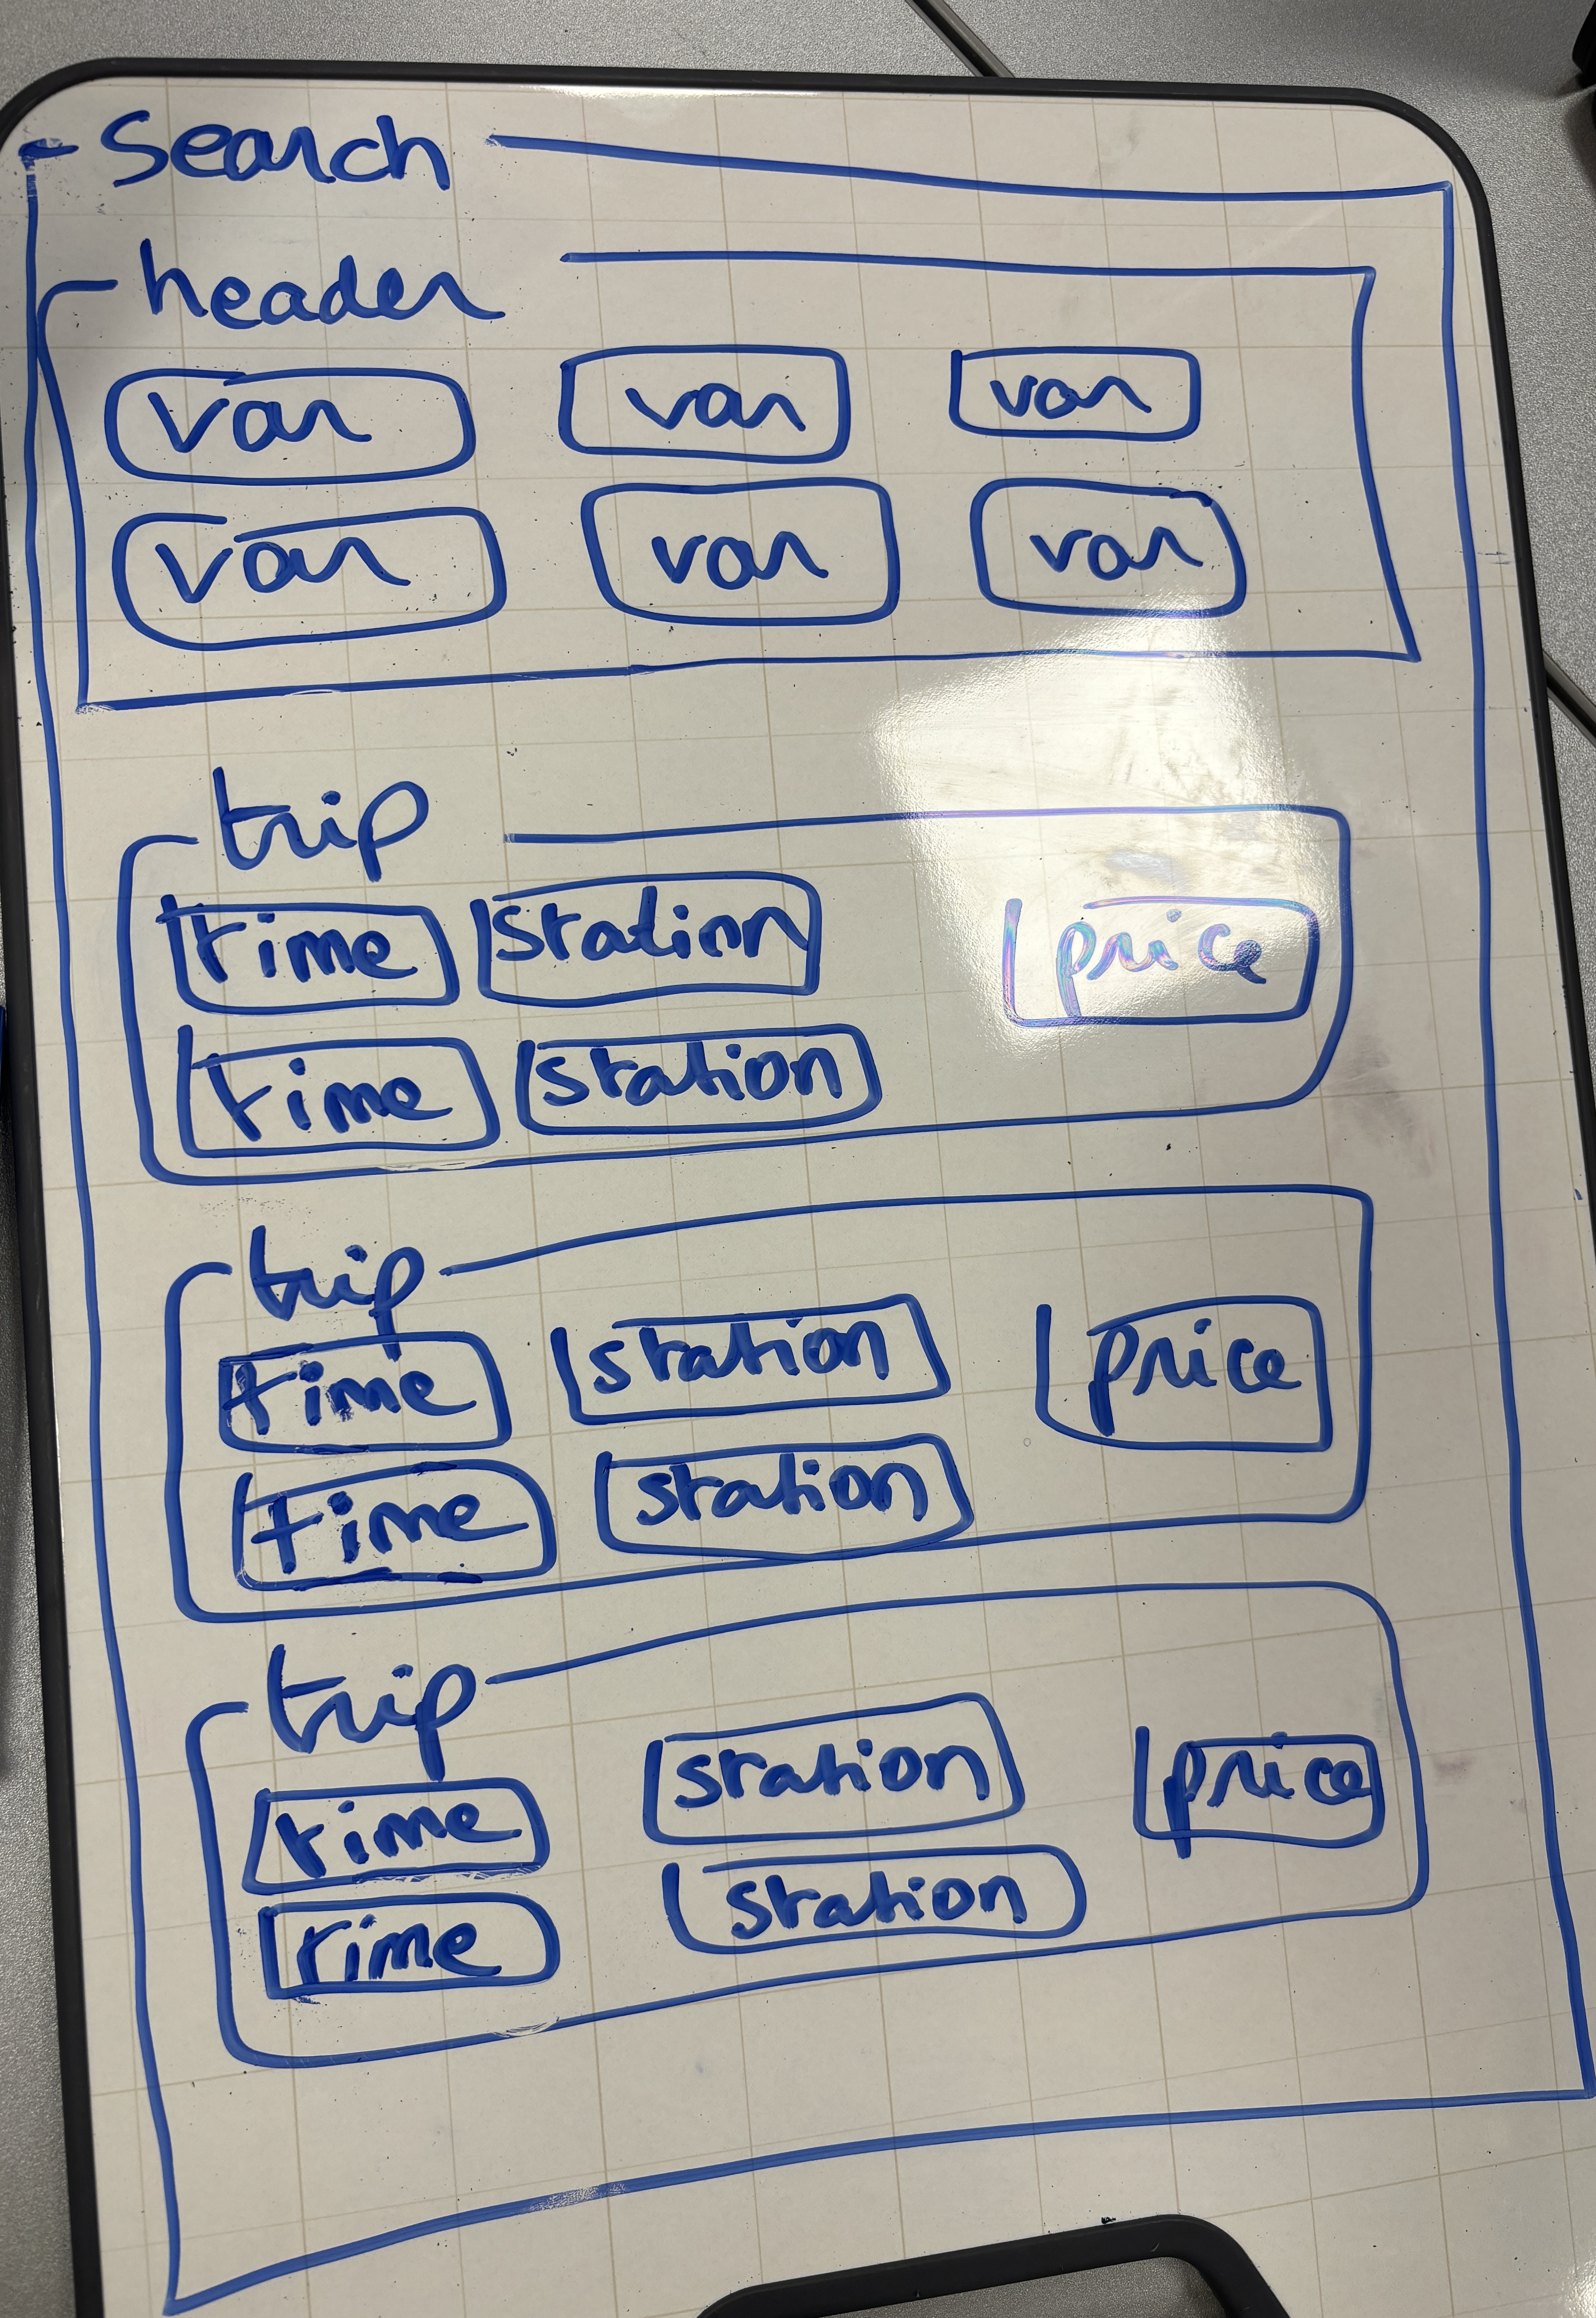 search
header
var var var
var var var
trip
time station price
time station
trip
time station price
time station
trip
time station price
time station